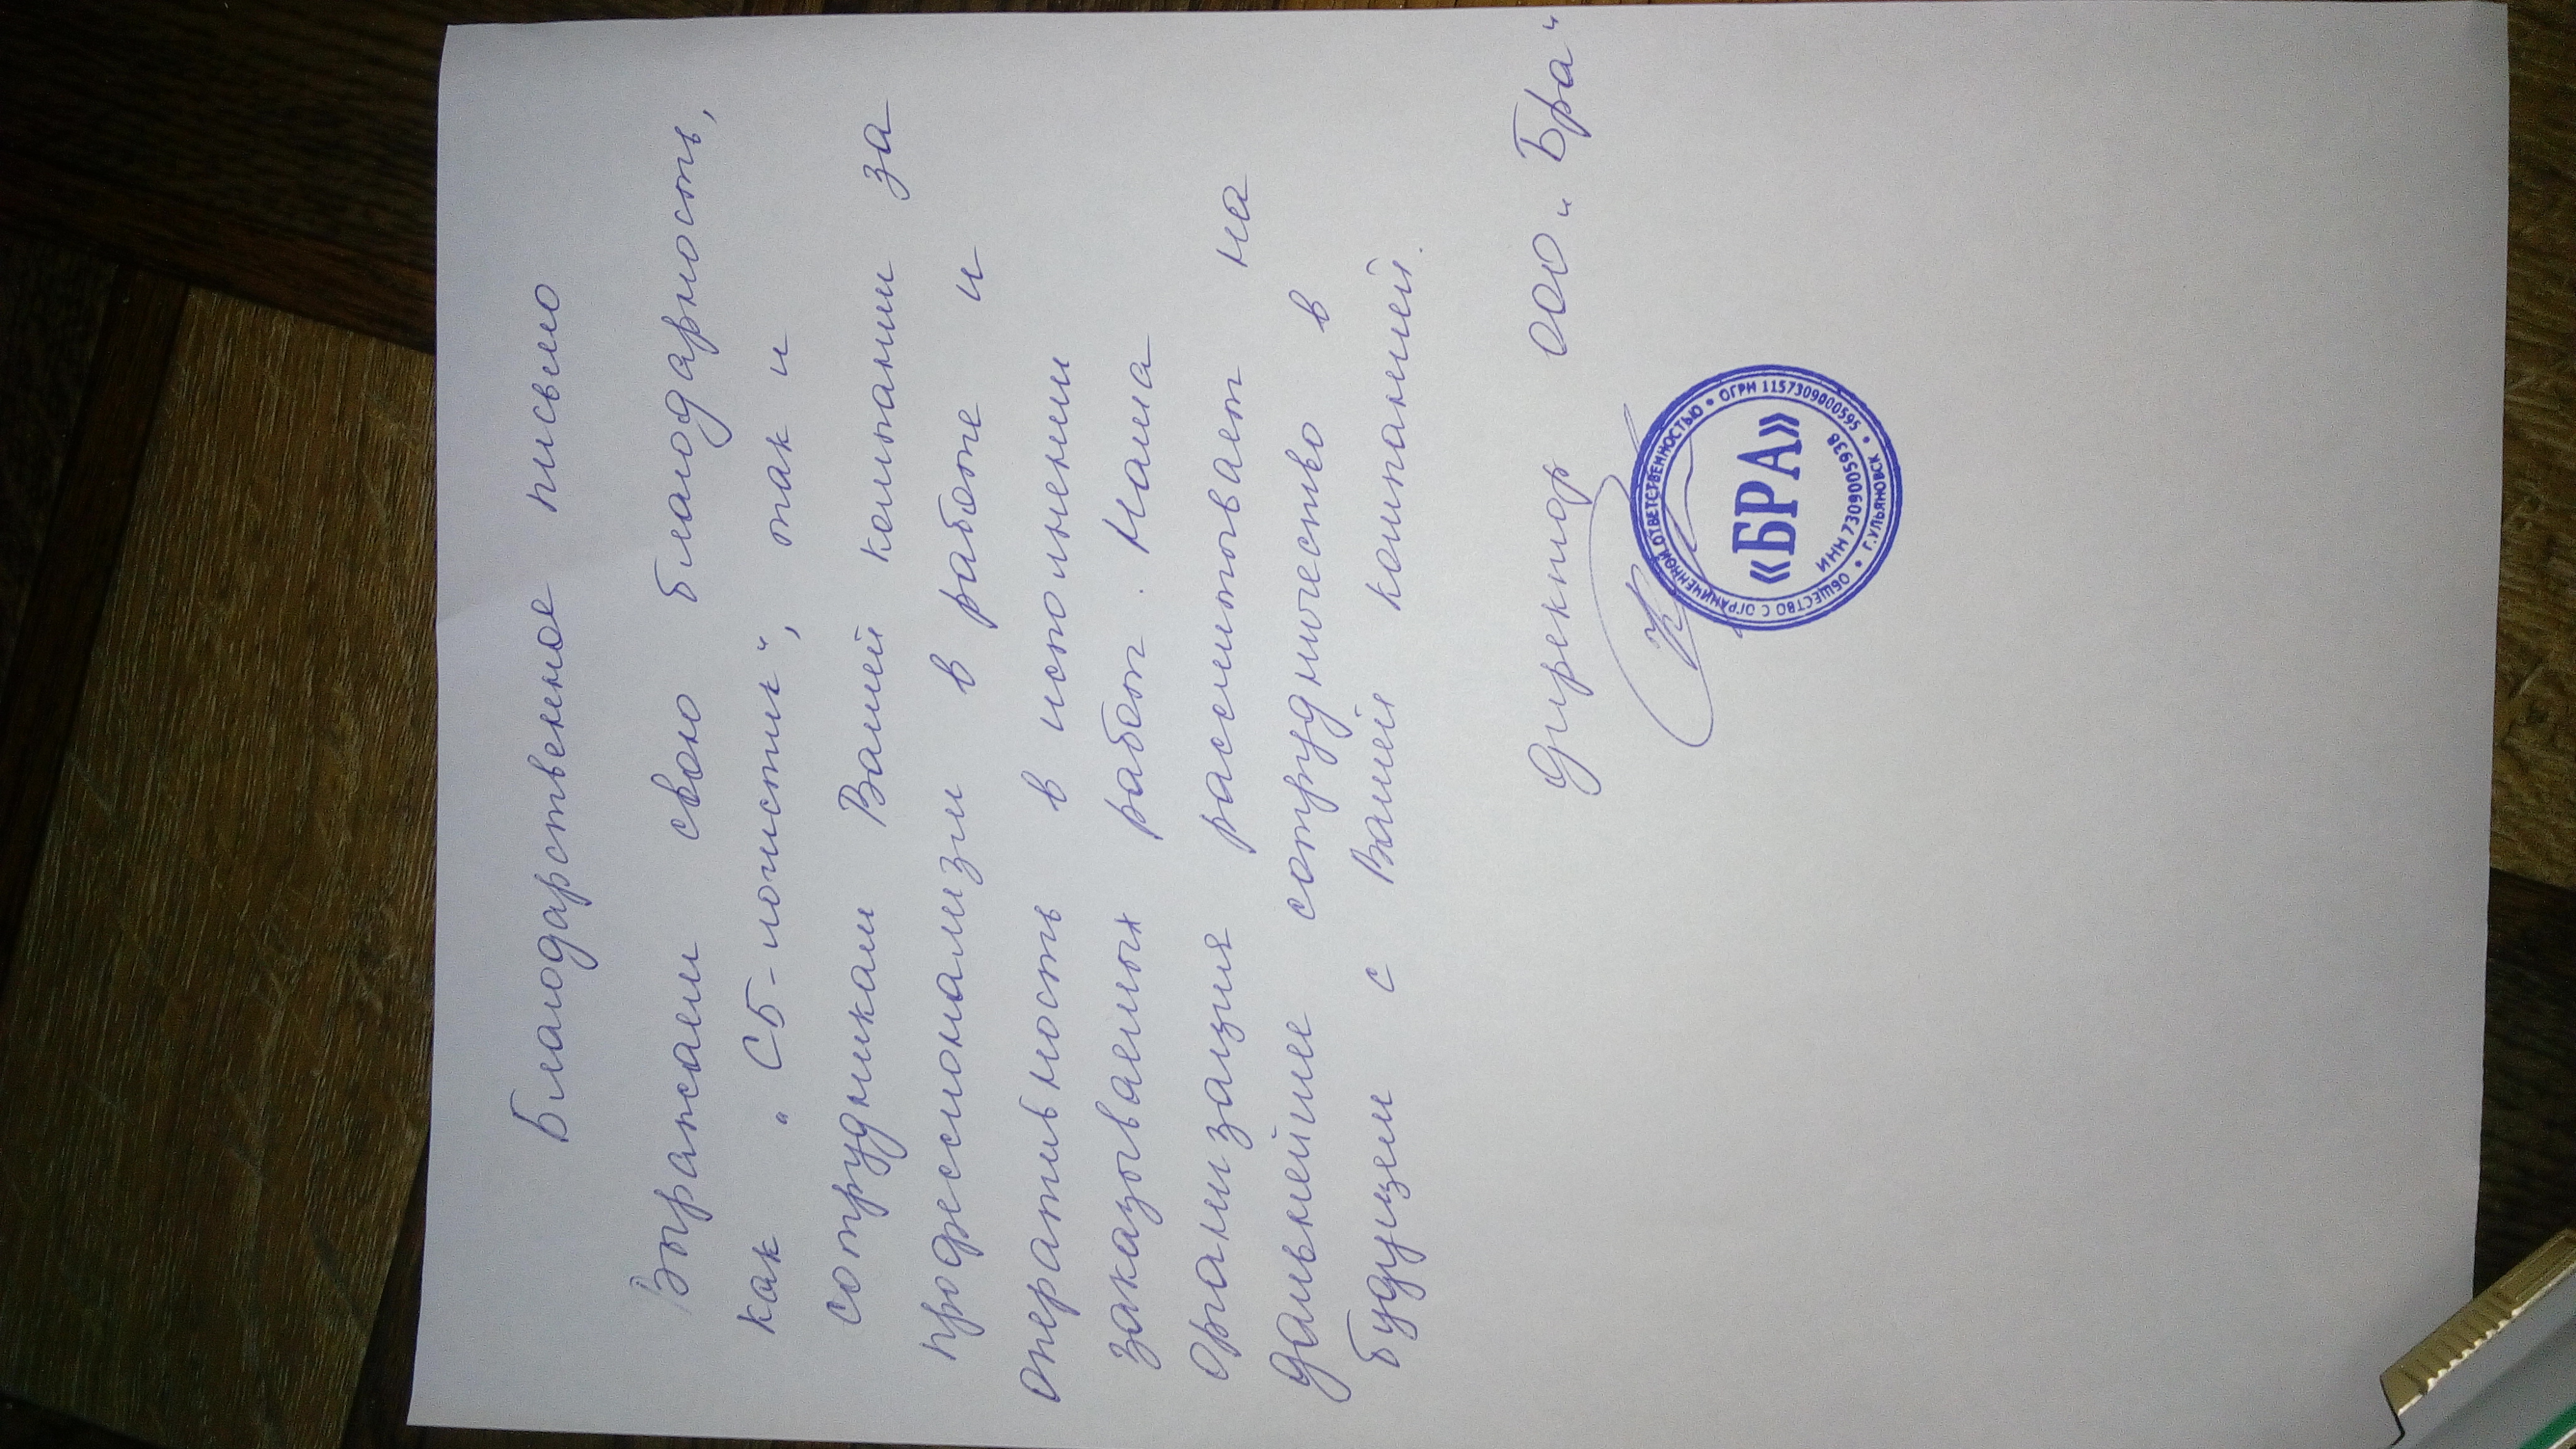 Благодарственное письмо
Выражаем свою благодарность,
как „СБ-логистик“, так и
сотрудникам Вашей компании за
профессионализм в работе и
оперативность в исполнении
заказываемых работ. Наша
организация рассчитывает на
дальнейшее сотрудничество в
будущем с Вашей компанией.
Директор ООО „Бра“
ОБЩЕСТВО С ОГРАНИЧЕННОЙ ОТВЕТСТВЕННОСТЬЮ • ОГРН 1157309000595
«БРА»
ИНН 7309005938
• Г.УЛЬЯНОВСК •